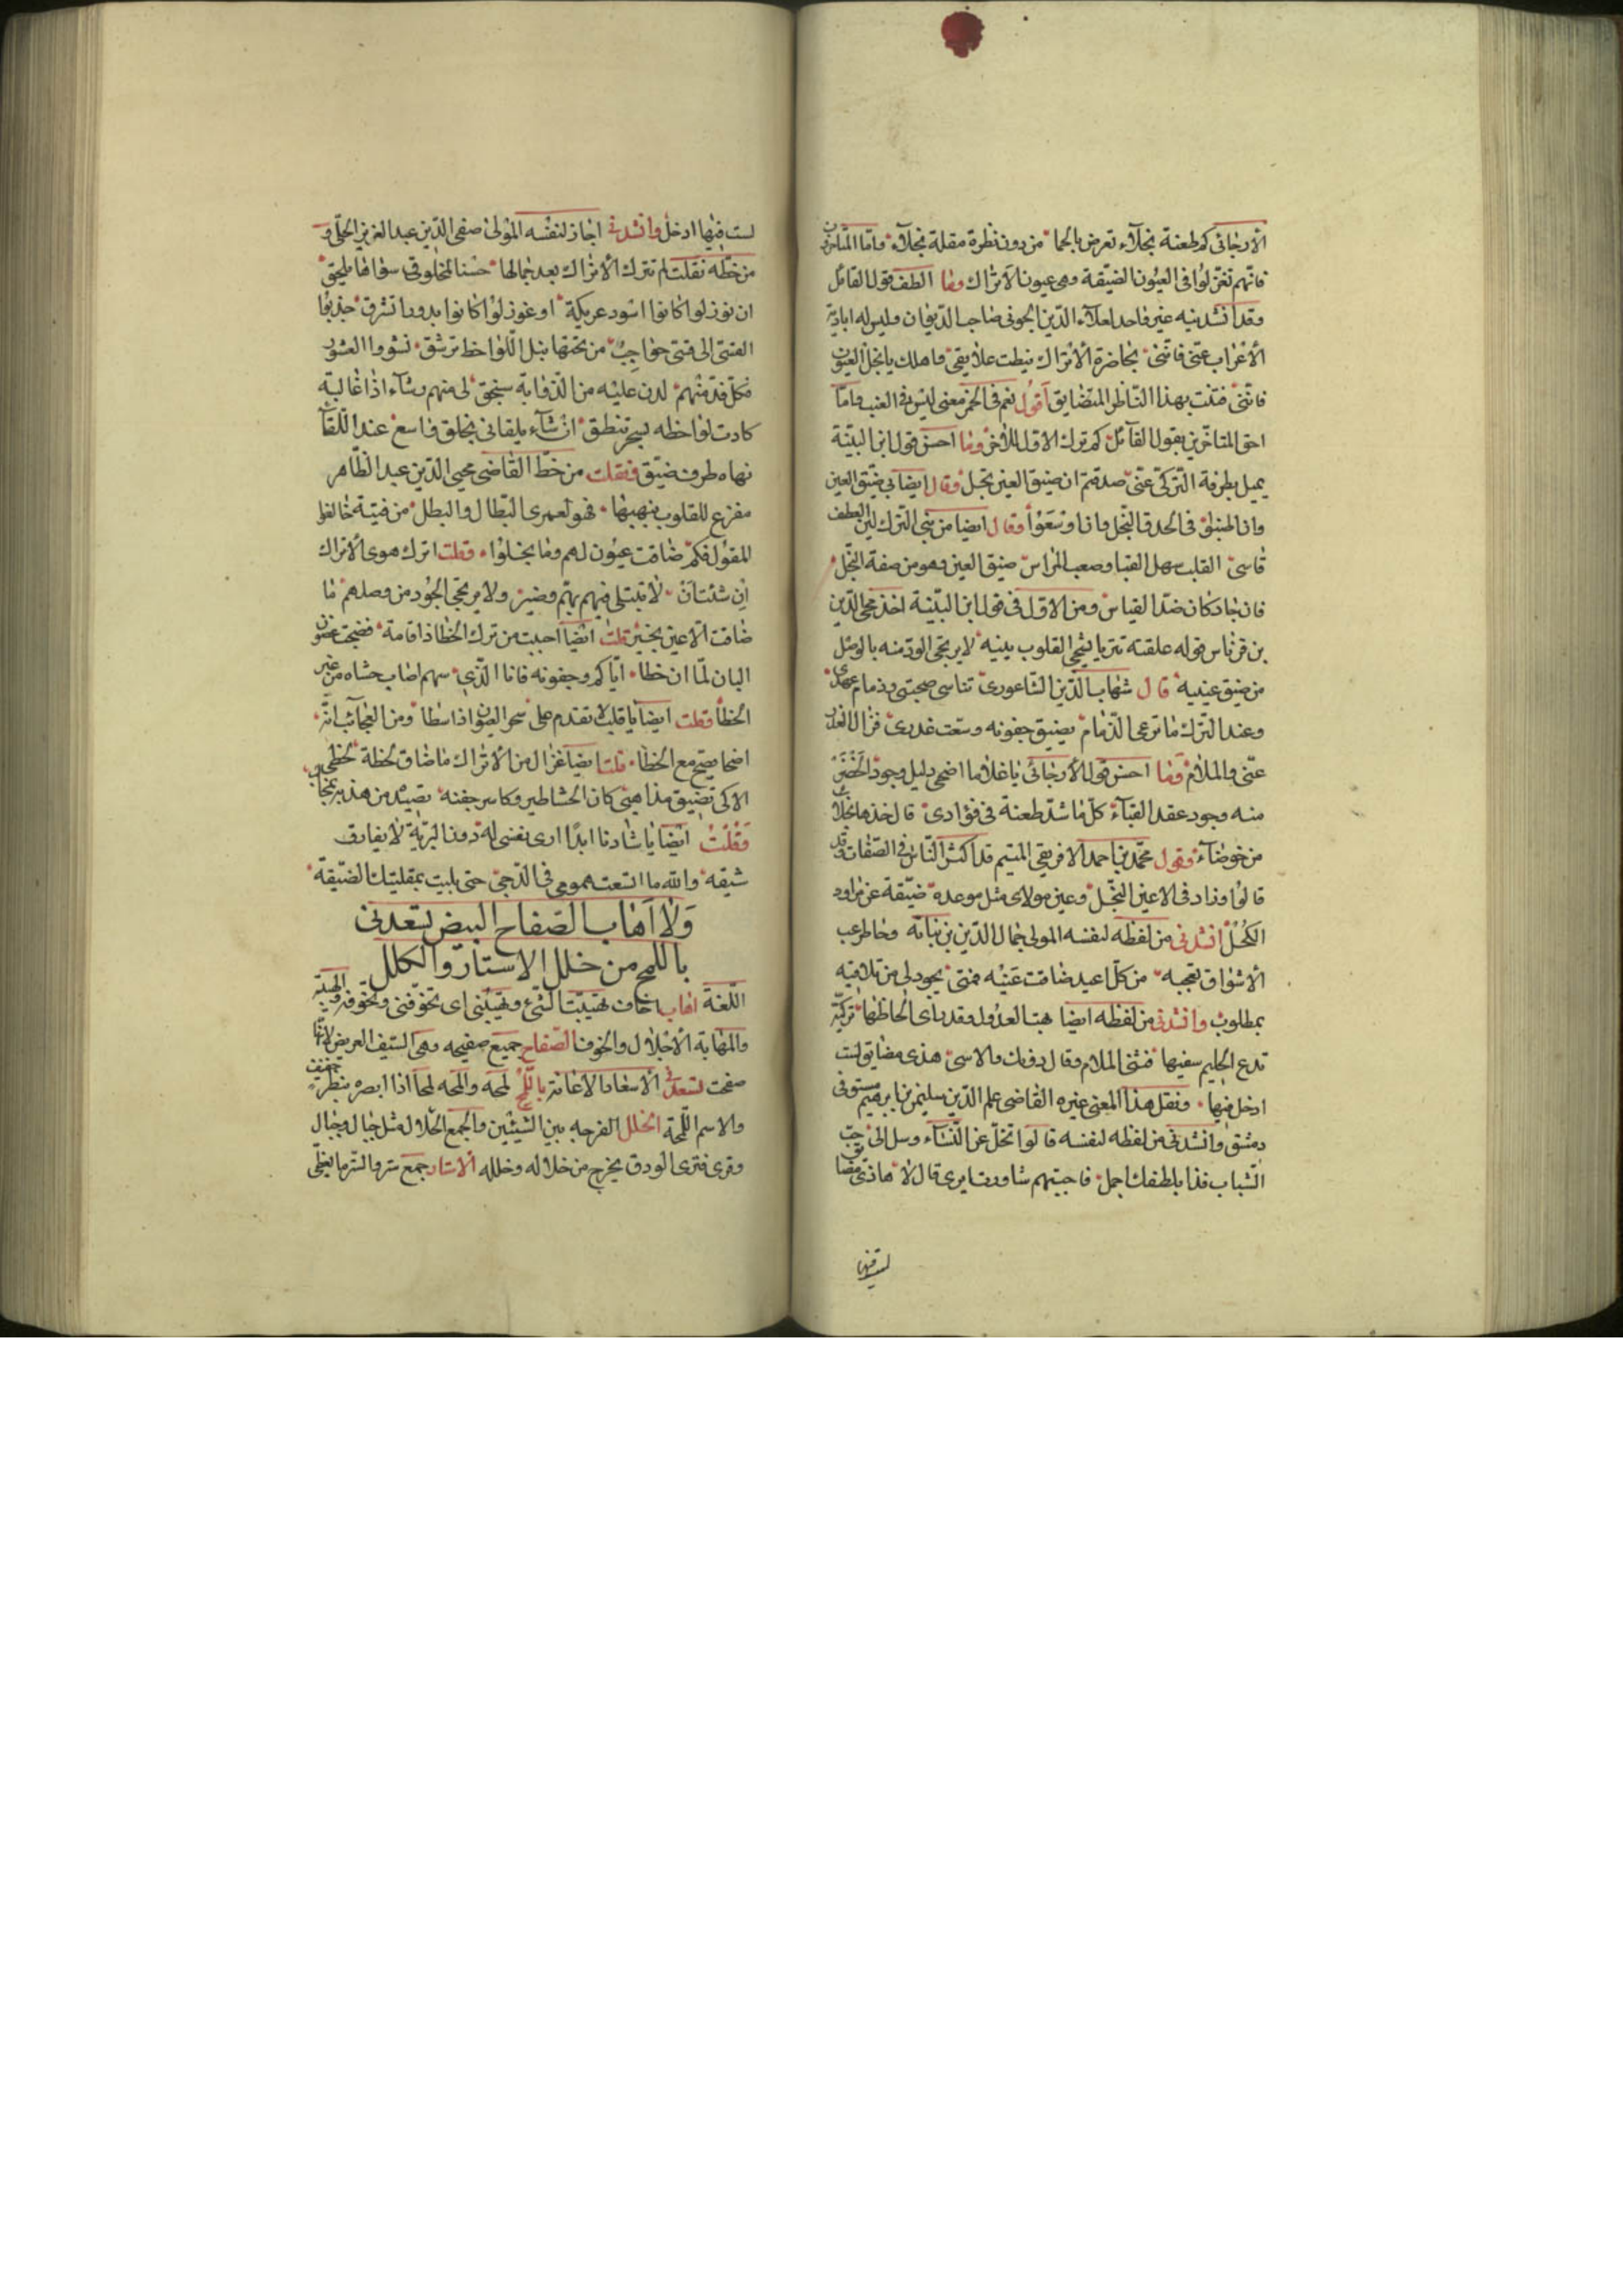 الأرجاني كم طعنة نجلاء تعرض بالحما من دون نظرة مقلة نجلاء واما المتاخرون
فانهم تغزلوا في العيون الضيقة وهى عيون الاتراك وما الطف قول القائل
وقد انشدنيه غير واحد لعلاء الدين الجونى صاحب الديوان وليس له ابادية
الأعراب عنى فاننى بحاضرة الأتراك نيطت علايقى واهلك يا نجل العيون
فاننى فتنت بهذا الناظر المتضايق أقول نعم فى الخمر معنى ليس فى العنب واما
احق المتاخرين بقول القائل كم ترك الاول للاخر وما احسن قول ابن النبيه
يميل بطرفه التركى عنى صدقتم ان ضيق العين بخل وقال ايضا بى ضيق العين
وان اطنبوا فى الحدق النجل وان اوسعوا وقال ايضا من بنى الترك لين العطف
قاسى القلب سهل القبا وصعب المراس ضيق العين وهو من صفة البخل
فان جاد كان ضد القياس ومن الاول فى قول ابن النبيه اخذ محيى الدين
بن قرناص قوله علقته تتريا يشجى القلوب ببينه لا يرتجى الود منه بالوصل
من ضيق عينيه قال شهاب الدين الشاغورى تناسى صحبتى وذمام عهدى
وعند الترك ما ترعى الذمام بضيق جفونه وسعت غدرى فزال العذر
عنى والملام وما احسن قول الأرجانى يا غلاما اضحى دليل وجود الخصر
منه وجود عقد القباء كل ما شد طعنة فى فؤادى قال خذها نجلا
من خوصاء وقول محمد بن احمد الافريقى المتيم قد اكثر الناس فى الصفات وقد
قالوا وزاد فى الاعين النجل وعين مولاى مثل موعده ضيقة عن مراود
الكحل انشدنى من لفظه لنفسه المولى جمال الدين بن نباته وخاطر عب
الأشواق تعجبه من كل اعيد ضاقت عينه فمتى يجود لى من تلاقيه
بمطلوب وانشدنى من لفظه ايضا بهت العذول وقد راى الحاظها تركية
تدع الحليم سفيها فثنى الملام وقال دونك والاسى هذى مضايق لست
ادخل فيها ونقل هذا المعنى غيره القاضى علم الدين سليمن بن ابرهيم مستوفى
دمشق وانشدنى من لفظه لنفسه قالوا تخل عن النساء ومل الى حب
الشباب فذا بلطفك اجمل فاجبتهم شاورت ايرى قال لا هاذى مضايق
لست فيها
لست فيها ادخل وانشدنى اجاز لنفسه المولى صفى الدين عبد العزيز الحلى و
من خطه نقلت لم تترك الأتراك بعد جمالها حسنا لمخلوق سواها يلحق
ان نوزلوا كانوا اسود عريكة او غوزلوا كانوا بدورا تشرق جذبوا
القسى الى قسى حواجب من تحتها نبل اللواحظ ترشق نشروا الشعور
فكل قد منهم لدن عليه من الذؤابة سنجق لى منهم رشاء اذا غالبته
كادت لواحظه بسحر تنطق ان شاء يلقانى بخلق واسع عند اللقاء
نهاه طرف ضيق ونقلت من خط القاضى محيى الدين عبد الظاهر
مفزع للقلوب ينهبها فهو لعمرى البطال والبطل من فتية خالفوا
المقول فكم ضاقت عيون لهم وما بخلوا وقلت اترك هوى الأتراك
ان شئت ان لا تبتلى فيهم بهم وضير ولا يرتجى الجود من وصلهم ما
ضاقت الاعين بخير قلت ايضا احببت من ترك الخطا ذا قامة فضحت غصون
البان لما ان خطا اياكم وجفونه فانا الذى سهم اصاب حشاه من غير
الخطأ وقلت ايضا يا قلب لا تقدم على سحر العيون اذا سطا ومن العجائب انه
اضحا يصح مع الخطا قلت ايضا غزال من الأتراك ما ضاق لحظة لحظى
الا كى تضيق مذاهبى كان الحشا طير وكاسر جفنه بصيد من هذبه بمخالب
وقلت ايضا يا شادنا ابدا ارى نفسى له دون البرية لا يفارق
شيقه والله ما اتسعت همومى فى الدجى حتى بليت بمقلتيك الضيقه
ولا اهاب الصفاح البيض تسعدنى
باللمح من خلل الاستار والكلل
اللغة اهاب اخاف تهيبت الشئ وتهيبنى اى تخوفنى وتخوفه والهيبة
والمهابة الأجلال والخوف الصفاح جميع صفيحه وهى السيف العريض لانها
صفحت تسعدنى الأسعاد الاعانة باللمح لمحه والمحه لمحا اذا ابصره بنظر خفيف
والاسم اللمحة الخلل الفرجه بين الشيئين والجمع الخلال مثل جبل وجبال
وقرى فترى الودق يخرج من خلاله وخلله الاستار جمع ستر والستر ما يغطى